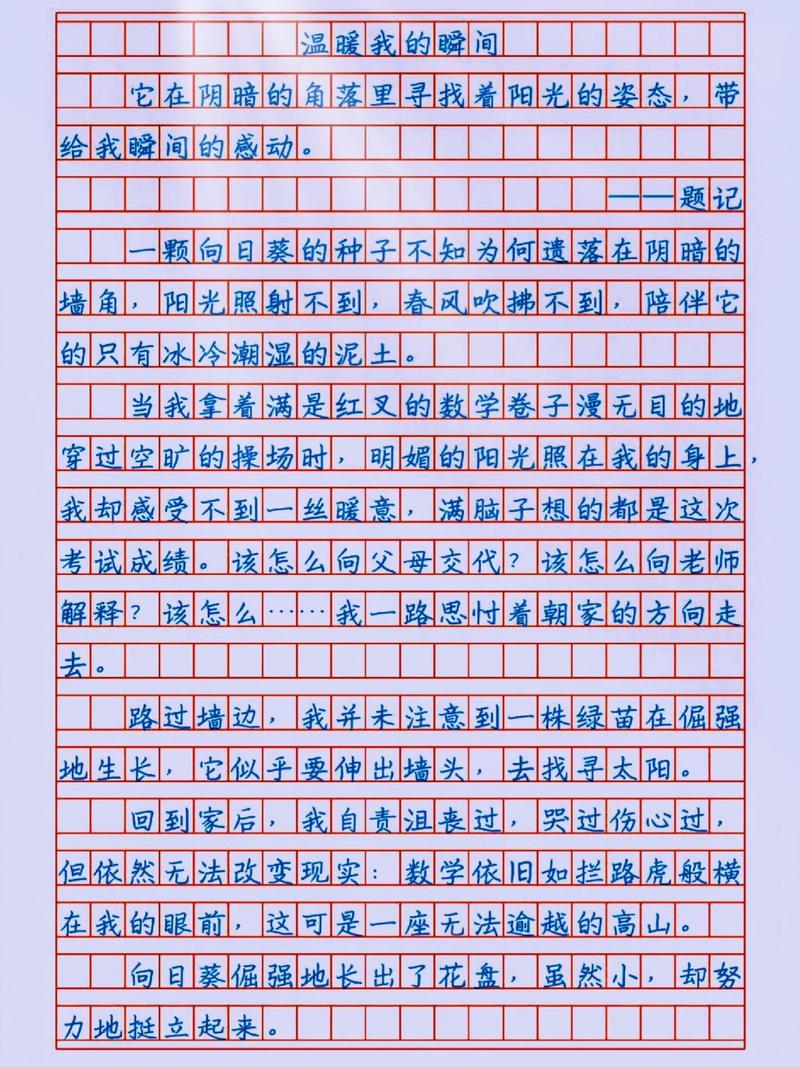 温暖我的瞬间
它在阴暗的角落里寻找着阳光的姿态，带
给我瞬间的感动。
——题记
一颗向日葵的种子不知为何遗落在阴暗的
墙角，阳光照射不到，春风吹拂不到，陪伴它
的只有冰冷潮湿的泥土。
当我拿着满是红叉的数学卷子漫无目的地
穿过空旷的操场时，明媚的阳光照在我的身上，
我却感受不到一丝暖意，满脑子想的都是这次
考试成绩。该怎么向父母交代？该怎么向老师
解释？该怎么……我一路思忖着朝家的方向走
去。
路过墙边，我并未注意到一株绿苗在倔强
地生长，它似乎要伸出墙头，去找寻太阳。
回到家后，我自责沮丧过，哭过伤心过，
但依然无法改变现实：数学依旧如拦路虎般横
在我的眼前，这可是一座无法逾越的高山。
向日葵倔强地长出了花盘，虽然小，却努
力地挺立起来。